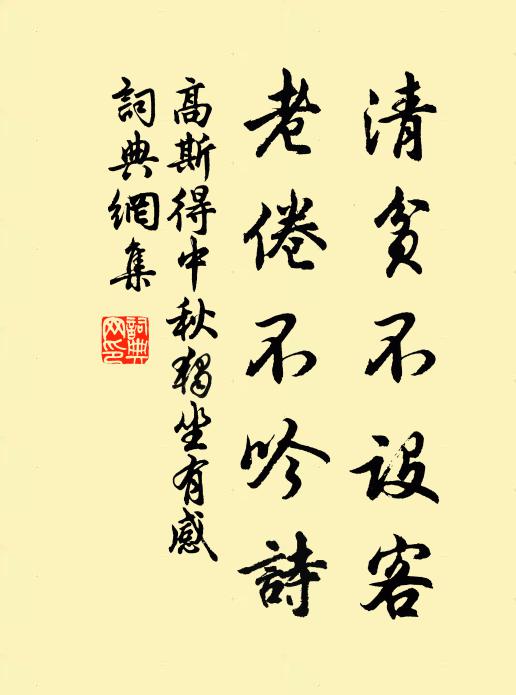 清貧不設客
老倦不吟詩
高斯得中秋獨坐有感
詞典網集
詞典网印